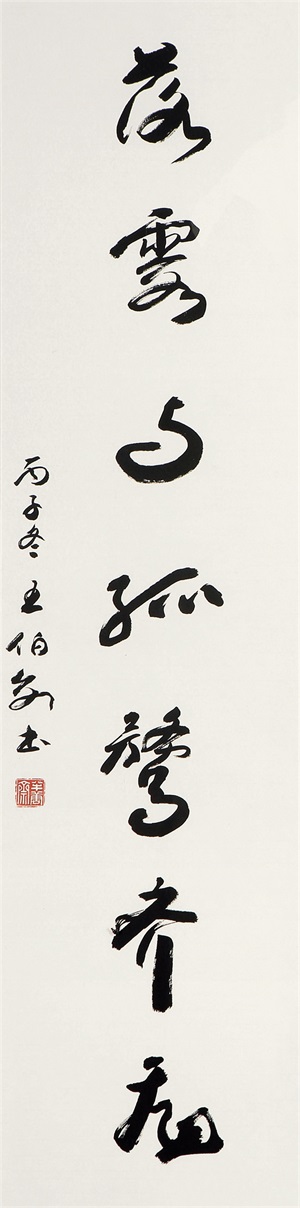 落霞与孤鹜齐飞
丙子冬王伯敏书